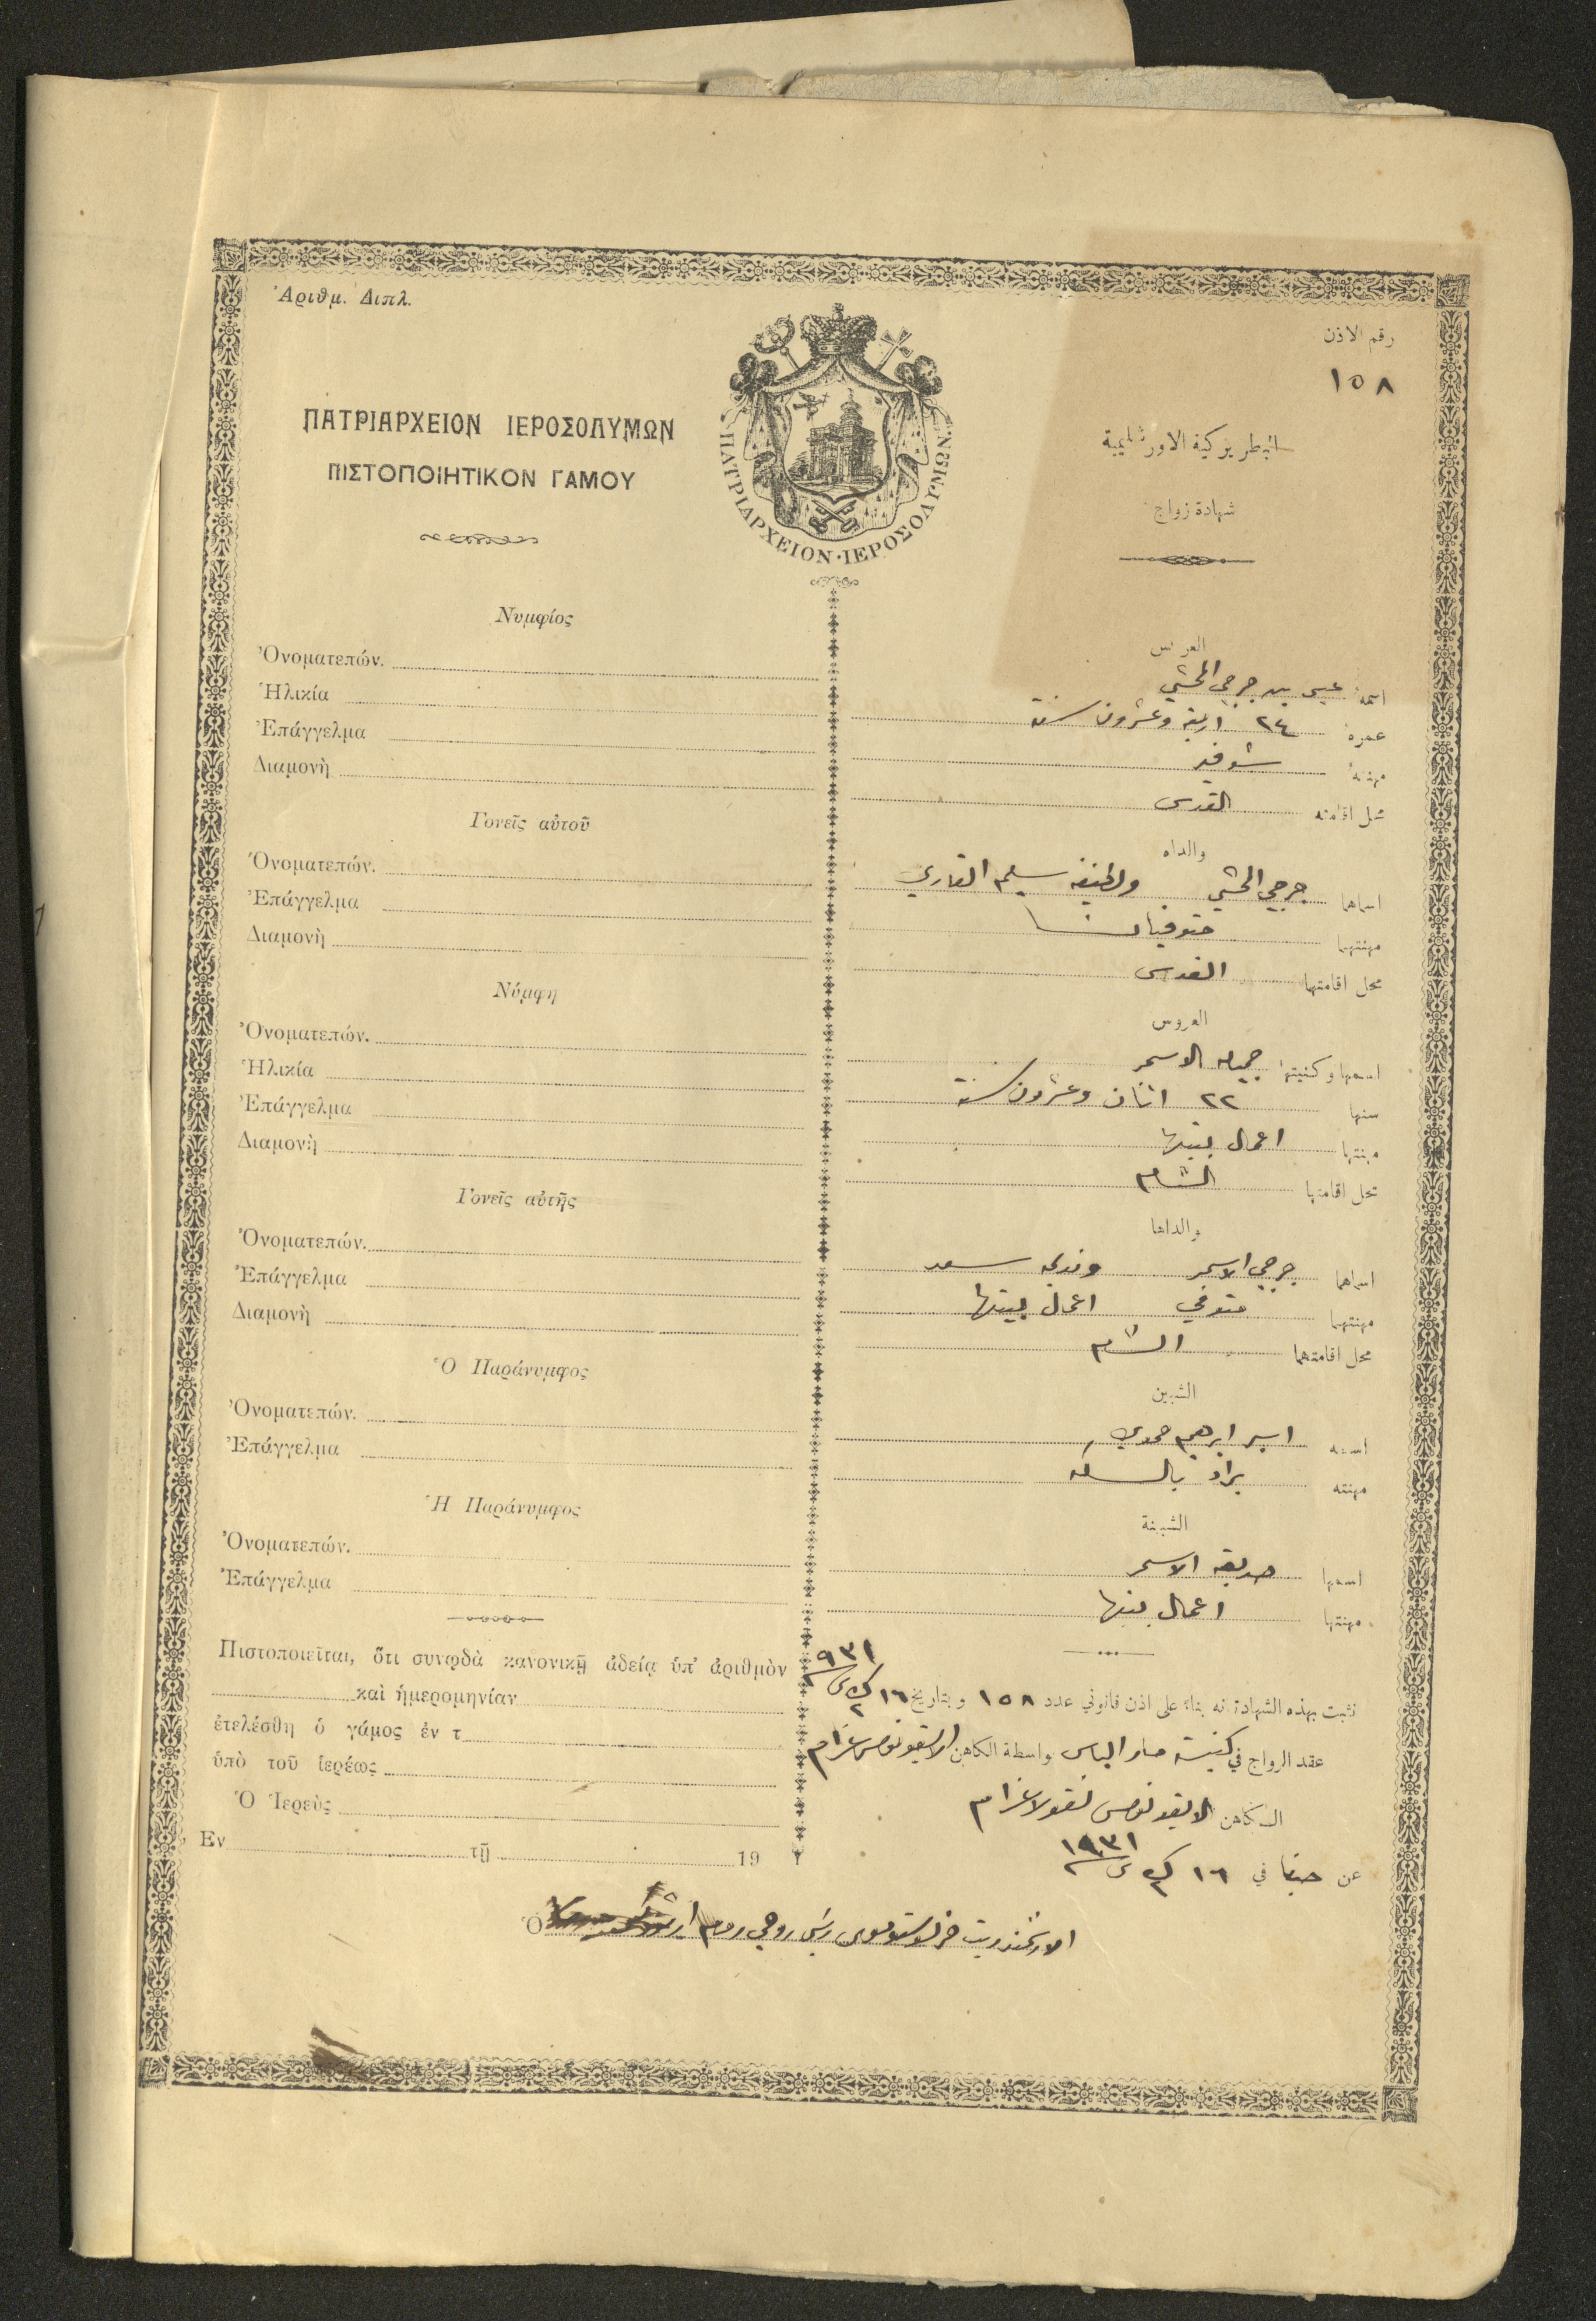 Ἀριθμ. Διπλ.
رقم الاذن
١٥٨
ΠΑΤΡΙΑΡΧΕΙΟΝ ΙΕΡΟΣΟΛΥΜΩΝ
ΠΙΣΤΟΠΟΙΗΤΙΚΟΝ ΓΑΜΟΥ
ΠΑΤΡΙΑΡΧΕΙΟΝ·ΙΕΡΟΣΟΛΥΜΩΝ.
البطريركية الاورشليمية
شهادة زواج
Νυμφίος
Ὀνοματεπών.
Ἡλικία
Ἐπάγγελμα
Διαμονὴ
Γονεῖς αὐτοῦ
Ὀνοματεπών.
Ἐπάγγελμα
Διαμονὴ
Νύμφη
Ὀνοματεπών.
Ἡλικία
Ἐπάγγελμα
Διαμονὴ
Γονεῖς αὐτῆς
Ὀνοματεπών.
Ἐπάγγελμα
Διαμονὴ
Ὁ Παράνυμφος
Ὀνοματεπών.
Ἐπάγγελμα
Ἡ Παράνυμφος
Ὀνοματεπών.
Ἐπάγγελμα
Πιστοποιεῖται, ὅτι συνῳδὰ κανονικῇ ἀδείᾳ ὑπ' ἀριθμὸν
καὶ ἡμερομηνίαν
ἐτελέσθη ὁ γάμος ἐν τ
ὑπὸ τοῦ ἱερέως
Ὁ Ἱερεὺς
Ἐν τῇ 19
Ὁ
العريس
اسمه عيسى جرجي
عمره ٢٤ اربعة وعشرون سنة
مهنته شوفير
محل اقامته القدس
والداه
اسماهما جرجي ولطيفه سليم القاري
مهنتهما متوفيان
محل اقامتهما القدس
العروس
اسمها وكنيتها جميله الاسمر
سنها ٢٢ اثنان وعشرون سنة
مهنتها اعمال بيتها
محل اقامتها الشام
والداها
اسماهما جرجي الاسمر سعد
مهنتهما متوفي اعمال بيتها
محل اقامتهما الشام
الشبين
اسمه ابرهيم
مهنته براد بالسكه
الشبينة
اسمها صديقه الاسمر
مهنتها اعمال بيتها
نثبت بهذه الشهادة انه بناء على اذن قانوني عدد ١٥٨ وبتاريخ ١٦ ك٢ ٩٣١
عقد الزواج في كنيسة مار الياس بواسطة الكاهن الايقونومس عزام
الكاهن الايقونومس نقولا عزام
عن حيفا في ١٦ ك٢ ١٩٣١
الارشمندريت رئيس روحي روم